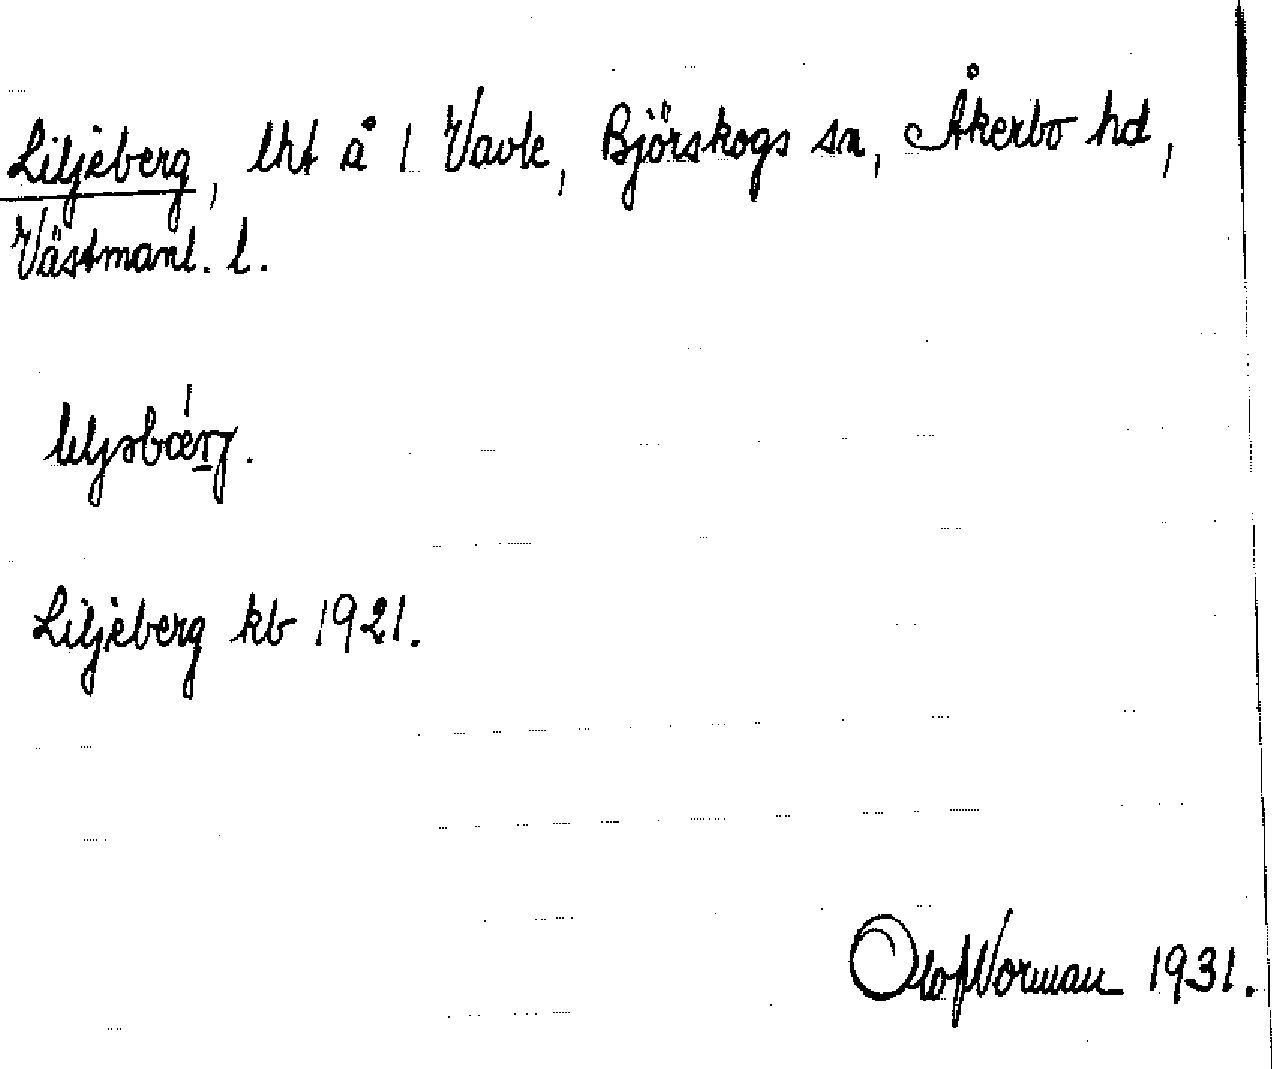 Liljeberg, lht å 1 Vavle, Björskogs sn, Åkerbo hd,
Västmanl. l.
liljəbæ̀rj.
Liljeberg kb 1921.
Olof Norman 1931.